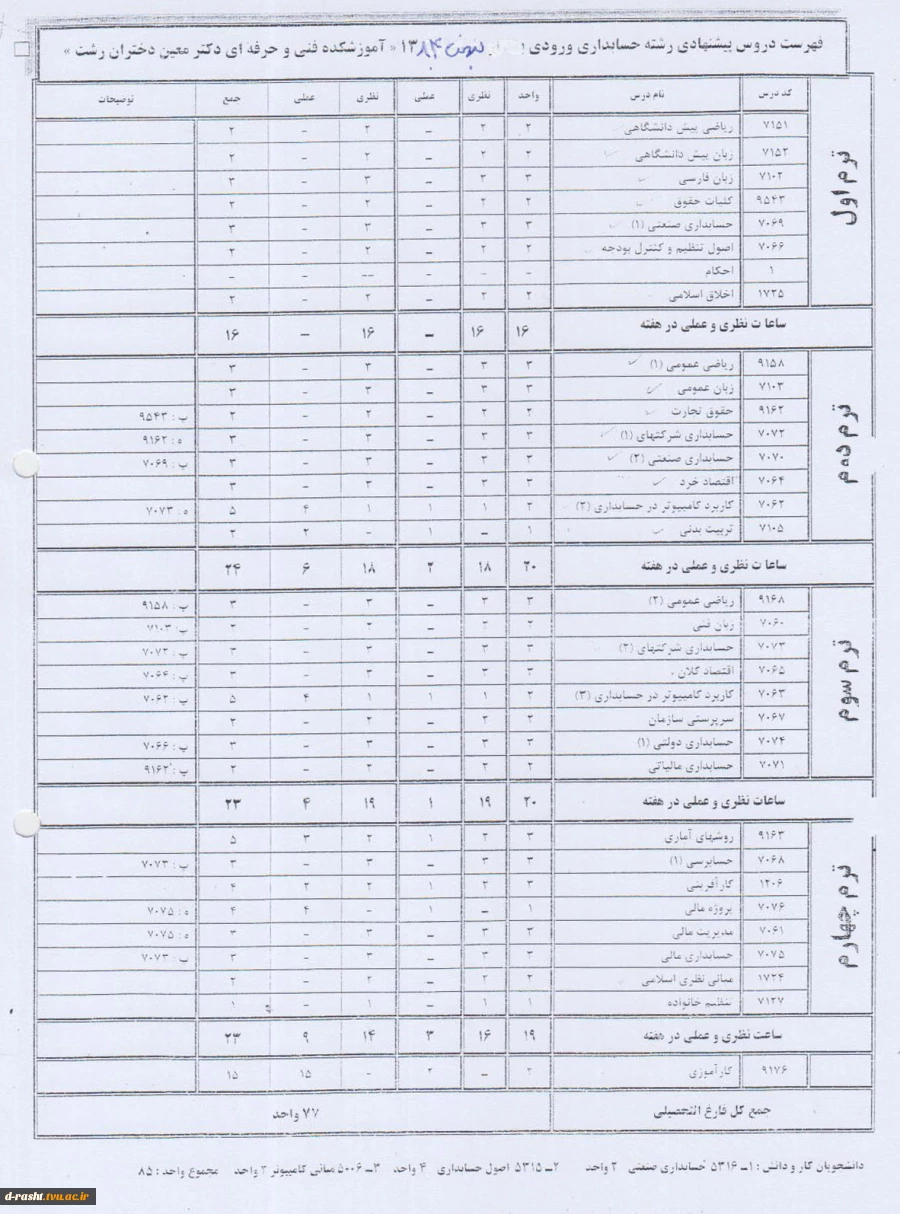 فهرست دروس پیشنهادی رشته حسابداری ورودی بهمن ۱۳۸۴ « آموزشکده فنی و حرفه ای دکتر معین دختران رشت »
کد درس نام درس واحد نظری عملی نظری عملی جمع توضیحات
ترم اول
۷۱۵۱ ریاضی پیش دانشگاهی ۲ ۲ – ۲ – ۲
۷۱۵۲ زبان پیش دانشگاهی ۲ ۲ – ۲ – ۲
۷۱۰۲ زبان فارسی ۳ ۳ – ۳ – ۳
۹۵۴۳ کلیات حقوق ۲ ۲ – ۲ – ۲
۷۰۶۹ حسابداری صنعتی (۱) ۳ ۳ – ۳ – ۳
۷۰۶۶ اصول تنظیم و کنترل بودجه ۲ ۲ – ۲ – ۲
۱ احکام - - – -- - -
۱۷۲۵ اخلاق اسلامی ۲ ۲ – ۲ - ۲
ساعات نظری و عملی در هفته ۱۶ ۱۶ – ۱۶ – ۱۶
ترم دوم
۹۱۵۸ ریاضی عمومی (۱) ۳ ۳ – ۳ - ۳
۷۱۰۳ زبان عمومی ۳ ۳ – ۳ - ۳
۹۱۶۲ حقوق تجارت ۲ ۲ – ۲ - ۲ پ : ۹۵۴۳
۷۰۷۲ حسابداری شرکتهای (۱) ۳ ۳ – ۳ - ۳ ه : ۹۱۶۲
۷۰۷۰ حسابداری صنعتی (۲) ۳ ۳ – ۳ - ۳ پ : ۷۰۶۹
۷۰۶۴ اقتصاد خرد ۳ ۳ – ۳ - ۳
۷۰۶۲ کاربرد کامپیوتر در حسابداری (۲) ۲ ۱ ۱ ۱ ۴ ۵ ه : ۷۰۷۳
۷۱۰۵ تربیت بدنی ۱ – ۱ - ۲ ۲
ساعات نظری و عملی در هفته ۲۰ ۱۸ ۲ ۱۸ ۶ ۲۴
ترم سوم
۹۱۶۸ ریاضی عمومی (۲) ۳ ۳ – ۳ - ۳ پ : ۹۱۵۸
۷۰۶۰ زبان فنی ۲ ۲ – ۲ - ۲ پ : ۷۱۰۳
۷۰۷۳ حسابداری شرکتهای (۲) ۳ ۳ – ۳ - ۳ پ : ۷۰۷۲
۷۰۶۵ اقتصاد کلان ۳ ۳ – ۳ - ۳ پ : ۷۰۶۴
۷۰۶۳ کاربرد کامپیوتر در حسابداری (۳) ۲ ۱ ۱ ۱ ۴ ۵ پ : ۷۰۶۲
۷۰۶۷ سرپرستی سازمان ۲ ۲ – ۲ - ۲
۷۰۷۴ حسابداری دولتی (۱) ۳ ۳ – ۳ - ۳ پ : ۷۰۶۶
۷۰۷۱ حسابداری مالیاتی ۲ ۲ – ۲ - ۲ پ : ۹۱۶۲
ساعات نظری و عملی در هفته ۲۰ ۱۹ ۱ ۱۹ ۴ ۲۳
ترم چهارم
۹۱۶۳ روشهای آماری ۳ ۲ ۱ ۲ ۳ ۵
۷۰۶۸ حسابرسی (۱) ۳ ۳ – ۳ - ۳ پ : ۷۰۷۳
۱۲۰۶ کارآفرینی ۳ ۲ ۱ ۲ ۲ ۴
۷۰۷۶ پروژه مالی ۱ – ۱ - ۴ ۴ ه : ۷۰۷۵
۷۰۶۱ مدیریت مالی ۳ ۳ – ۳ - ۳ ه : ۷۰۷۵
۷۰۷۵ حسابداری مالی ۳ ۳ – ۳ - ۳ پ : ۷۰۷۳
۱۷۲۴ مبانی نظری اسلامی ۲ ۲ – ۲ - ۲
۷۱۲۷ تنظیم خانواده ۱ ۱ – ۱ - ۱
ساعت نظری و عملی در هفته ۱۹ ۱۶ ۳ ۱۴ ۹ ۲۳
۹۱۷۶ کارآموزی ۲ – ۲ - ۱۵ ۱۵
جمع کل فارغ التحصیلی ۷۷ واحد
دانشجویان کار و دانش : ۱ـ ۵۳۱۶ حسابداری صنعتی ۲ واحد ۲ـ ۵۳۱۵ اصول حسابداری ۴ واحد ۳ـ ۵۰۰۶ مبانی کامپیوتر ۲ واحد مجموع واحد : ۸۵
d-rasht.tvu.ac.ir